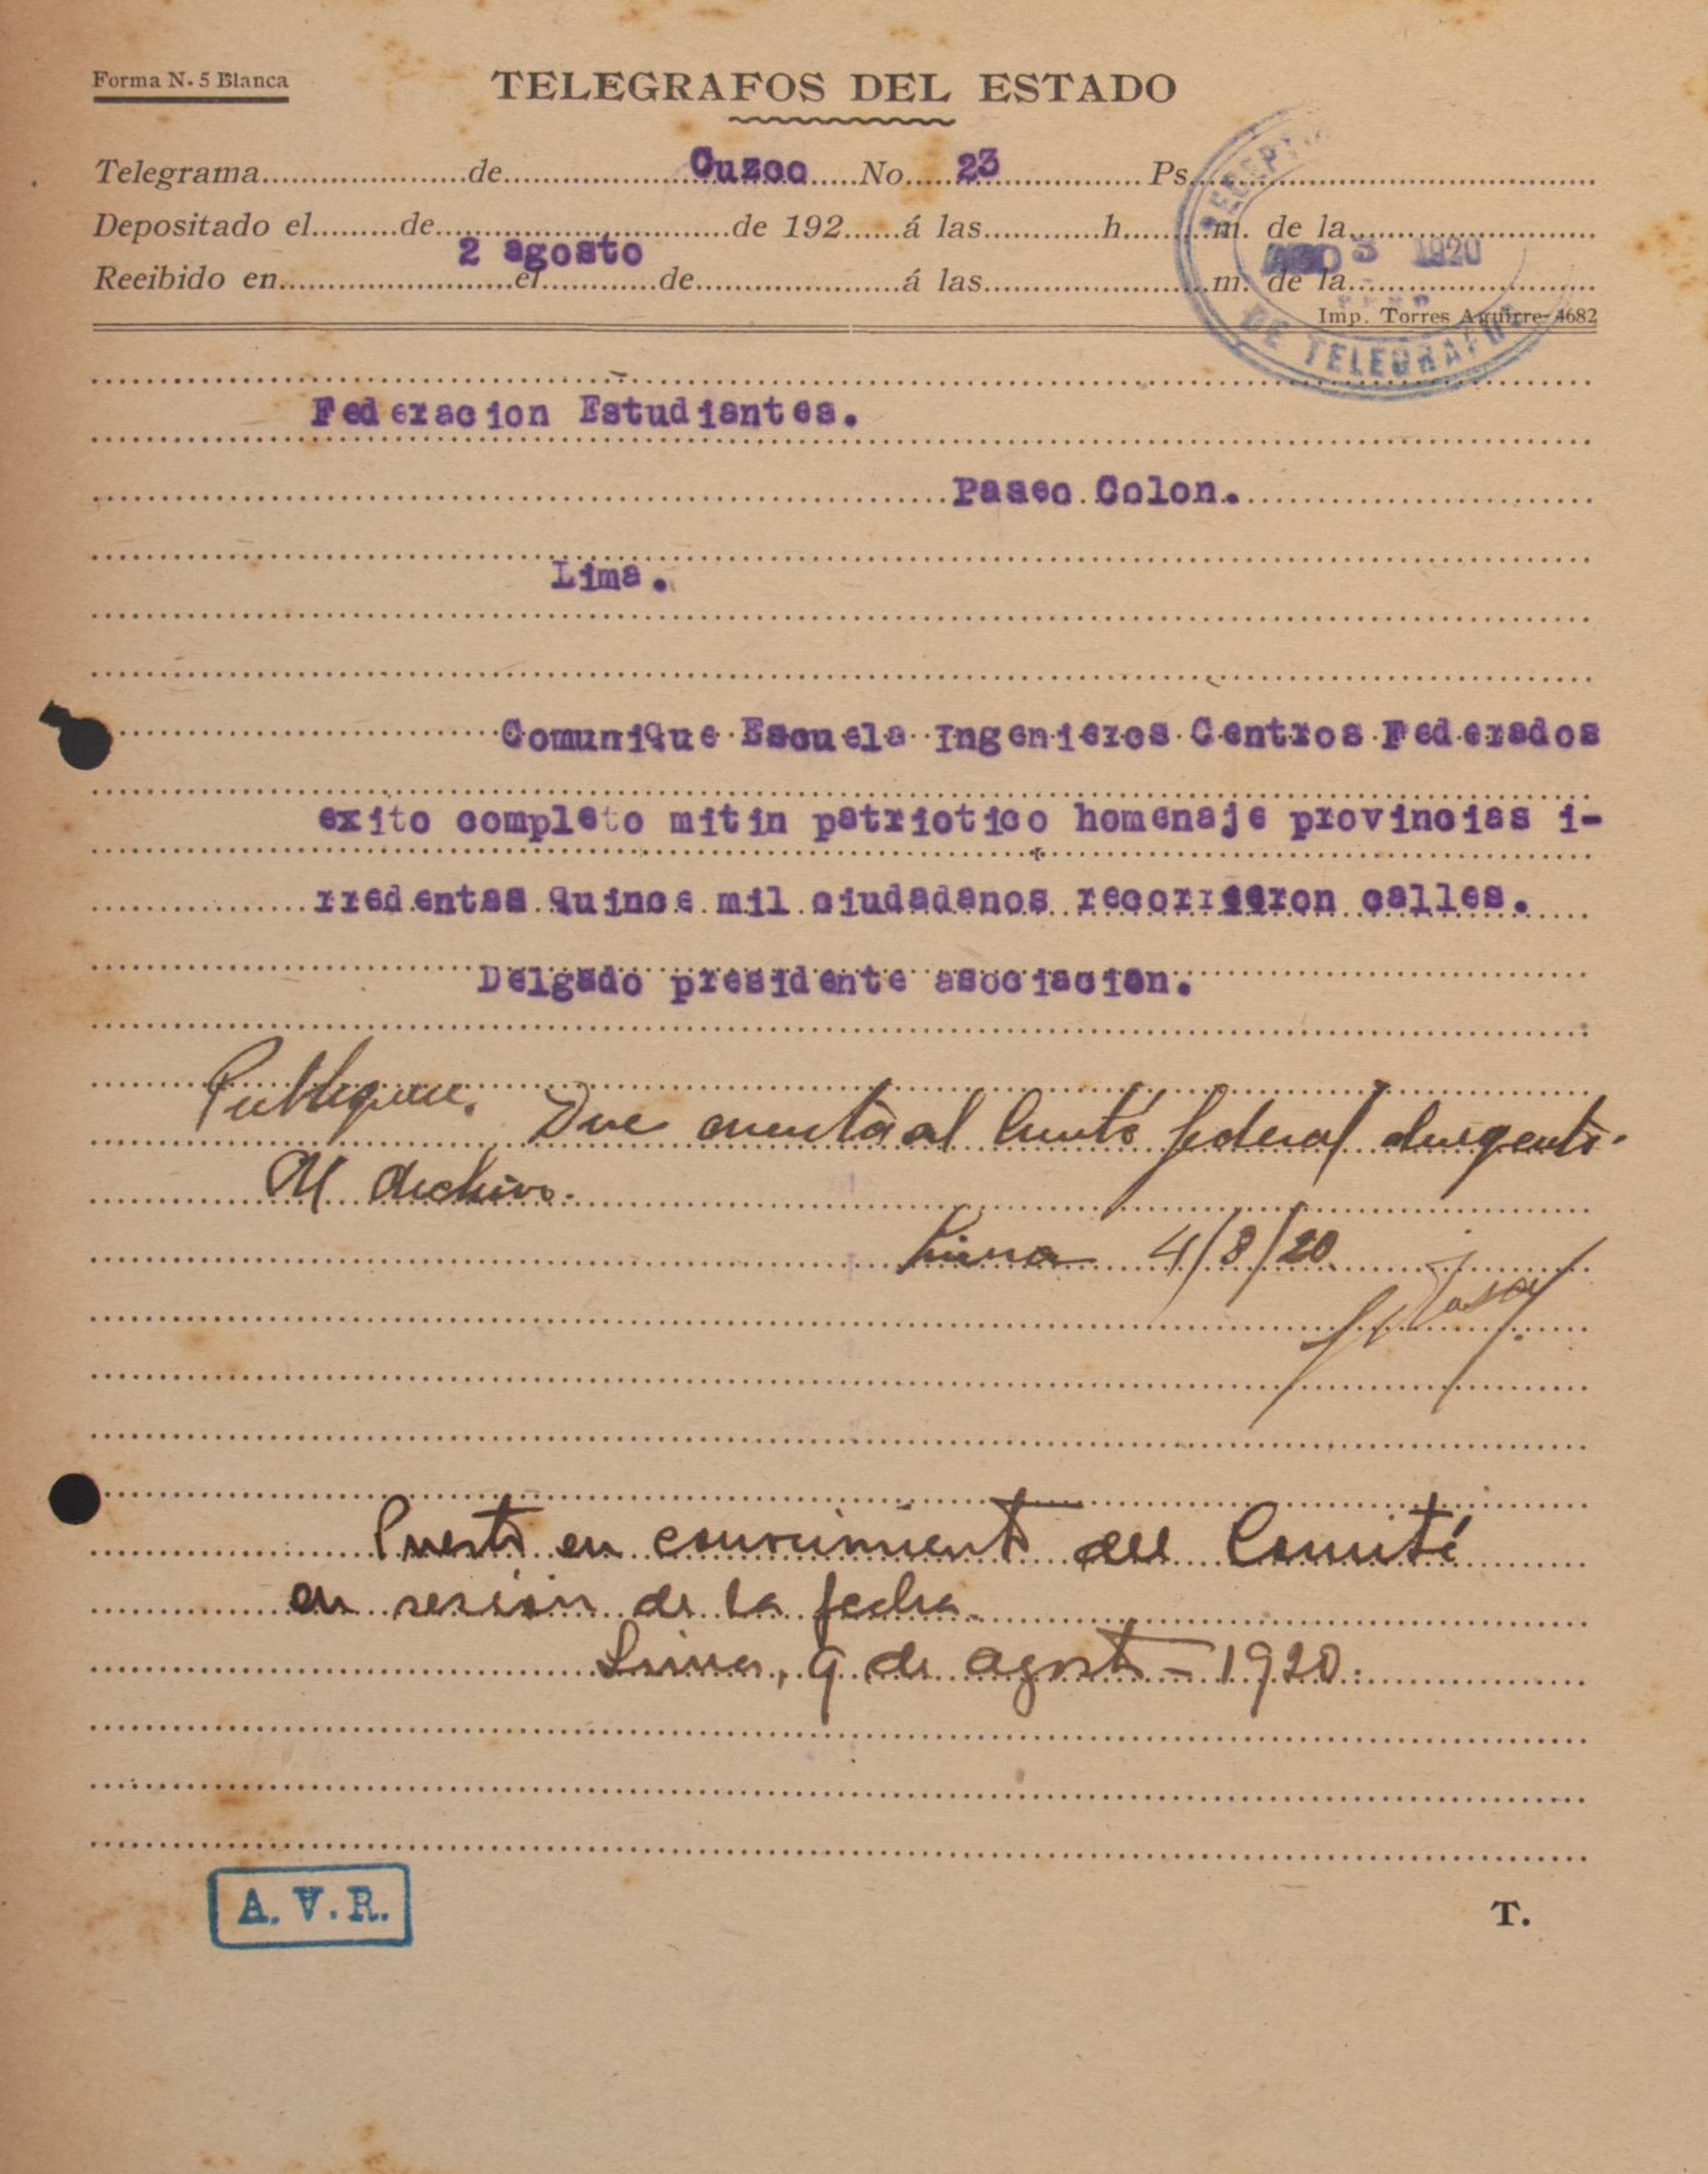 Forma N. 5 Blanca
TELEGRAFOS DEL ESTADO
Telegrama.....................de....................Cuzco.....No.....23..................Ps.
Depositado el.........de..............................de 192......á las............h.........m. de la
2 agosto
Recibido en........................el............de......................á las........................m. de la
AGO 3 1920
Imp. Torres Aguirre-4682
DE TELEGRAFOS
Federacion Estudiantes.
Paseo Colon.
Lima.
ComuniQue Escuela Ingenieros Centros Federados
exito completo mitin patriotico homenaje provincias i-
rredentas Quince mil ciudadanos recorrieron calles.
Delgado presidente asociacion.
Publíquese. Dése cuenta al Comité federal dirigente.
Al Archivo.
Lima 4/8/20.
Puesto en conocimiento del Comité
en sesión de la fecha.
Lima, 9 de agosto - 1920.
A. V. R.
T.